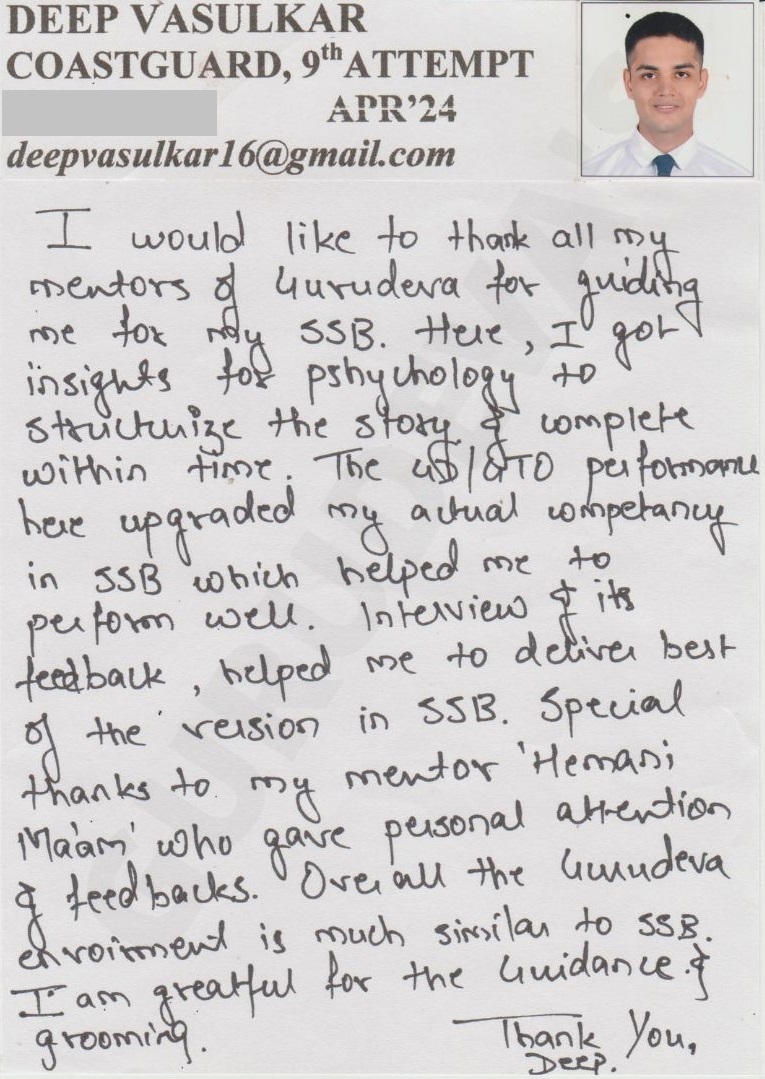 DEEP VASULKAR
COASTGUARD, 9th ATTEMPT
APR'24
deepvasulkar16@gmail.com
I would like to thank all my
mentors of Gurudeva for guiding
me for my SSB. Here, I got
insights for pshychology to
structurize the story & complete
within time. The GD/GTO performance
here upgraded my actual competancy
in SSB which helped me to
perform well. Interview & its
feedback, helped me to deliver best
of the version in SSB. Special
thanks to my mentor 'Hemani
Ma'am' who gave personal attention
& feedbacks. Overall the Gurudeva
enviorment is much similar to SSB.
I am greatful for the Guidance &
grooming.
Thank You,
Deep.